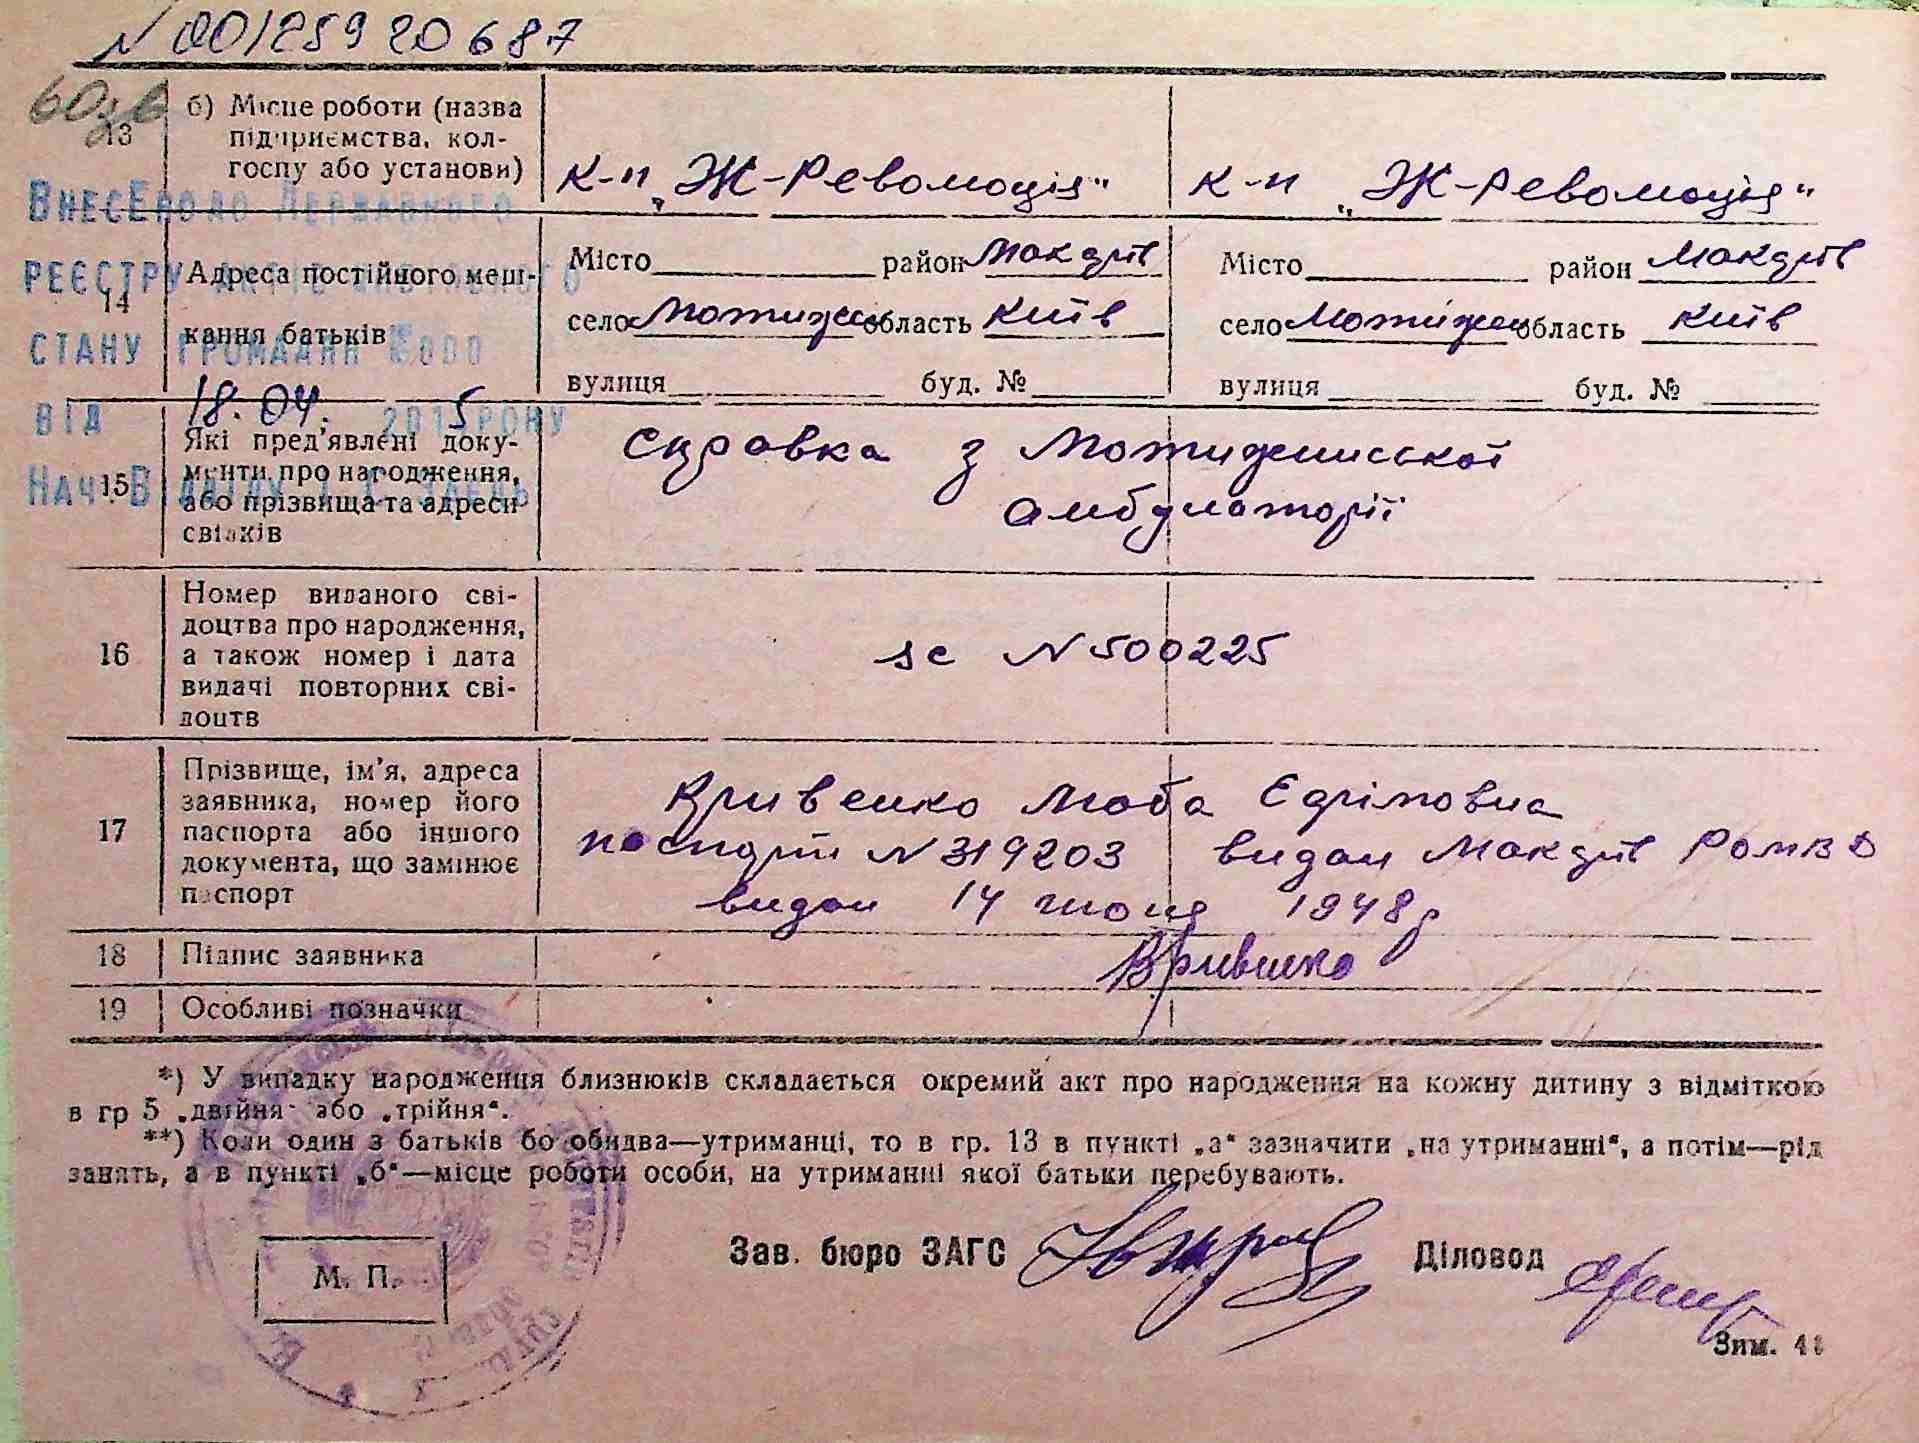 N 00125920687
13 б) Місце роботи (назва
підприємства, кол-
госпу або установи)
к-п „Ж-Революція" к-п „Ж-Революція"
Внесено до Державного
реєстру актів цивільного
стану громадян
від 18.04. 2015 року
Нач. В
14 Адреса постійного меш-
кання батьків
Місто район Макарів Місто район Макарів
село Мотижин область Київ село Мотижин область Київ
вулиця буд. № вулиця буд. №
15 Які пред'явлені доку-
менти про народження,
або прізвища та адреси
свідків
Справка з Мотижинської
амбулаторії
16 Номер виданого сві-
доцтва про народження,
а також номер і дата
видачі повторних сві-
доцтв
N 500225
17 Прізвище, ім'я, адреса
заявника, номер його
паспорта або іншого
документа, що замінює
паспорт
Кривенко Люба Єфрімовна
паспорт N 319203 видан Макарів РОМВД
видан 14 июня 1948 р
18 Підпис заявника
Кривенко
19 Особливі позначки
*) У випадку народження близнюків складається окремий акт про народження на кожну дитину з відміткою
в гр 5 „двійня" або „трійня".
**) Коли один з батьків бо обидва—утриманці, то в гр. 13 в пункті „а" зазначити „на утриманні", а потім—рід
занять, а в пункті „б"—місце роботи особи, на утриманні якої батьки перебувають.
Зав. бюро ЗАГС Діловод
М. П.
Зим.